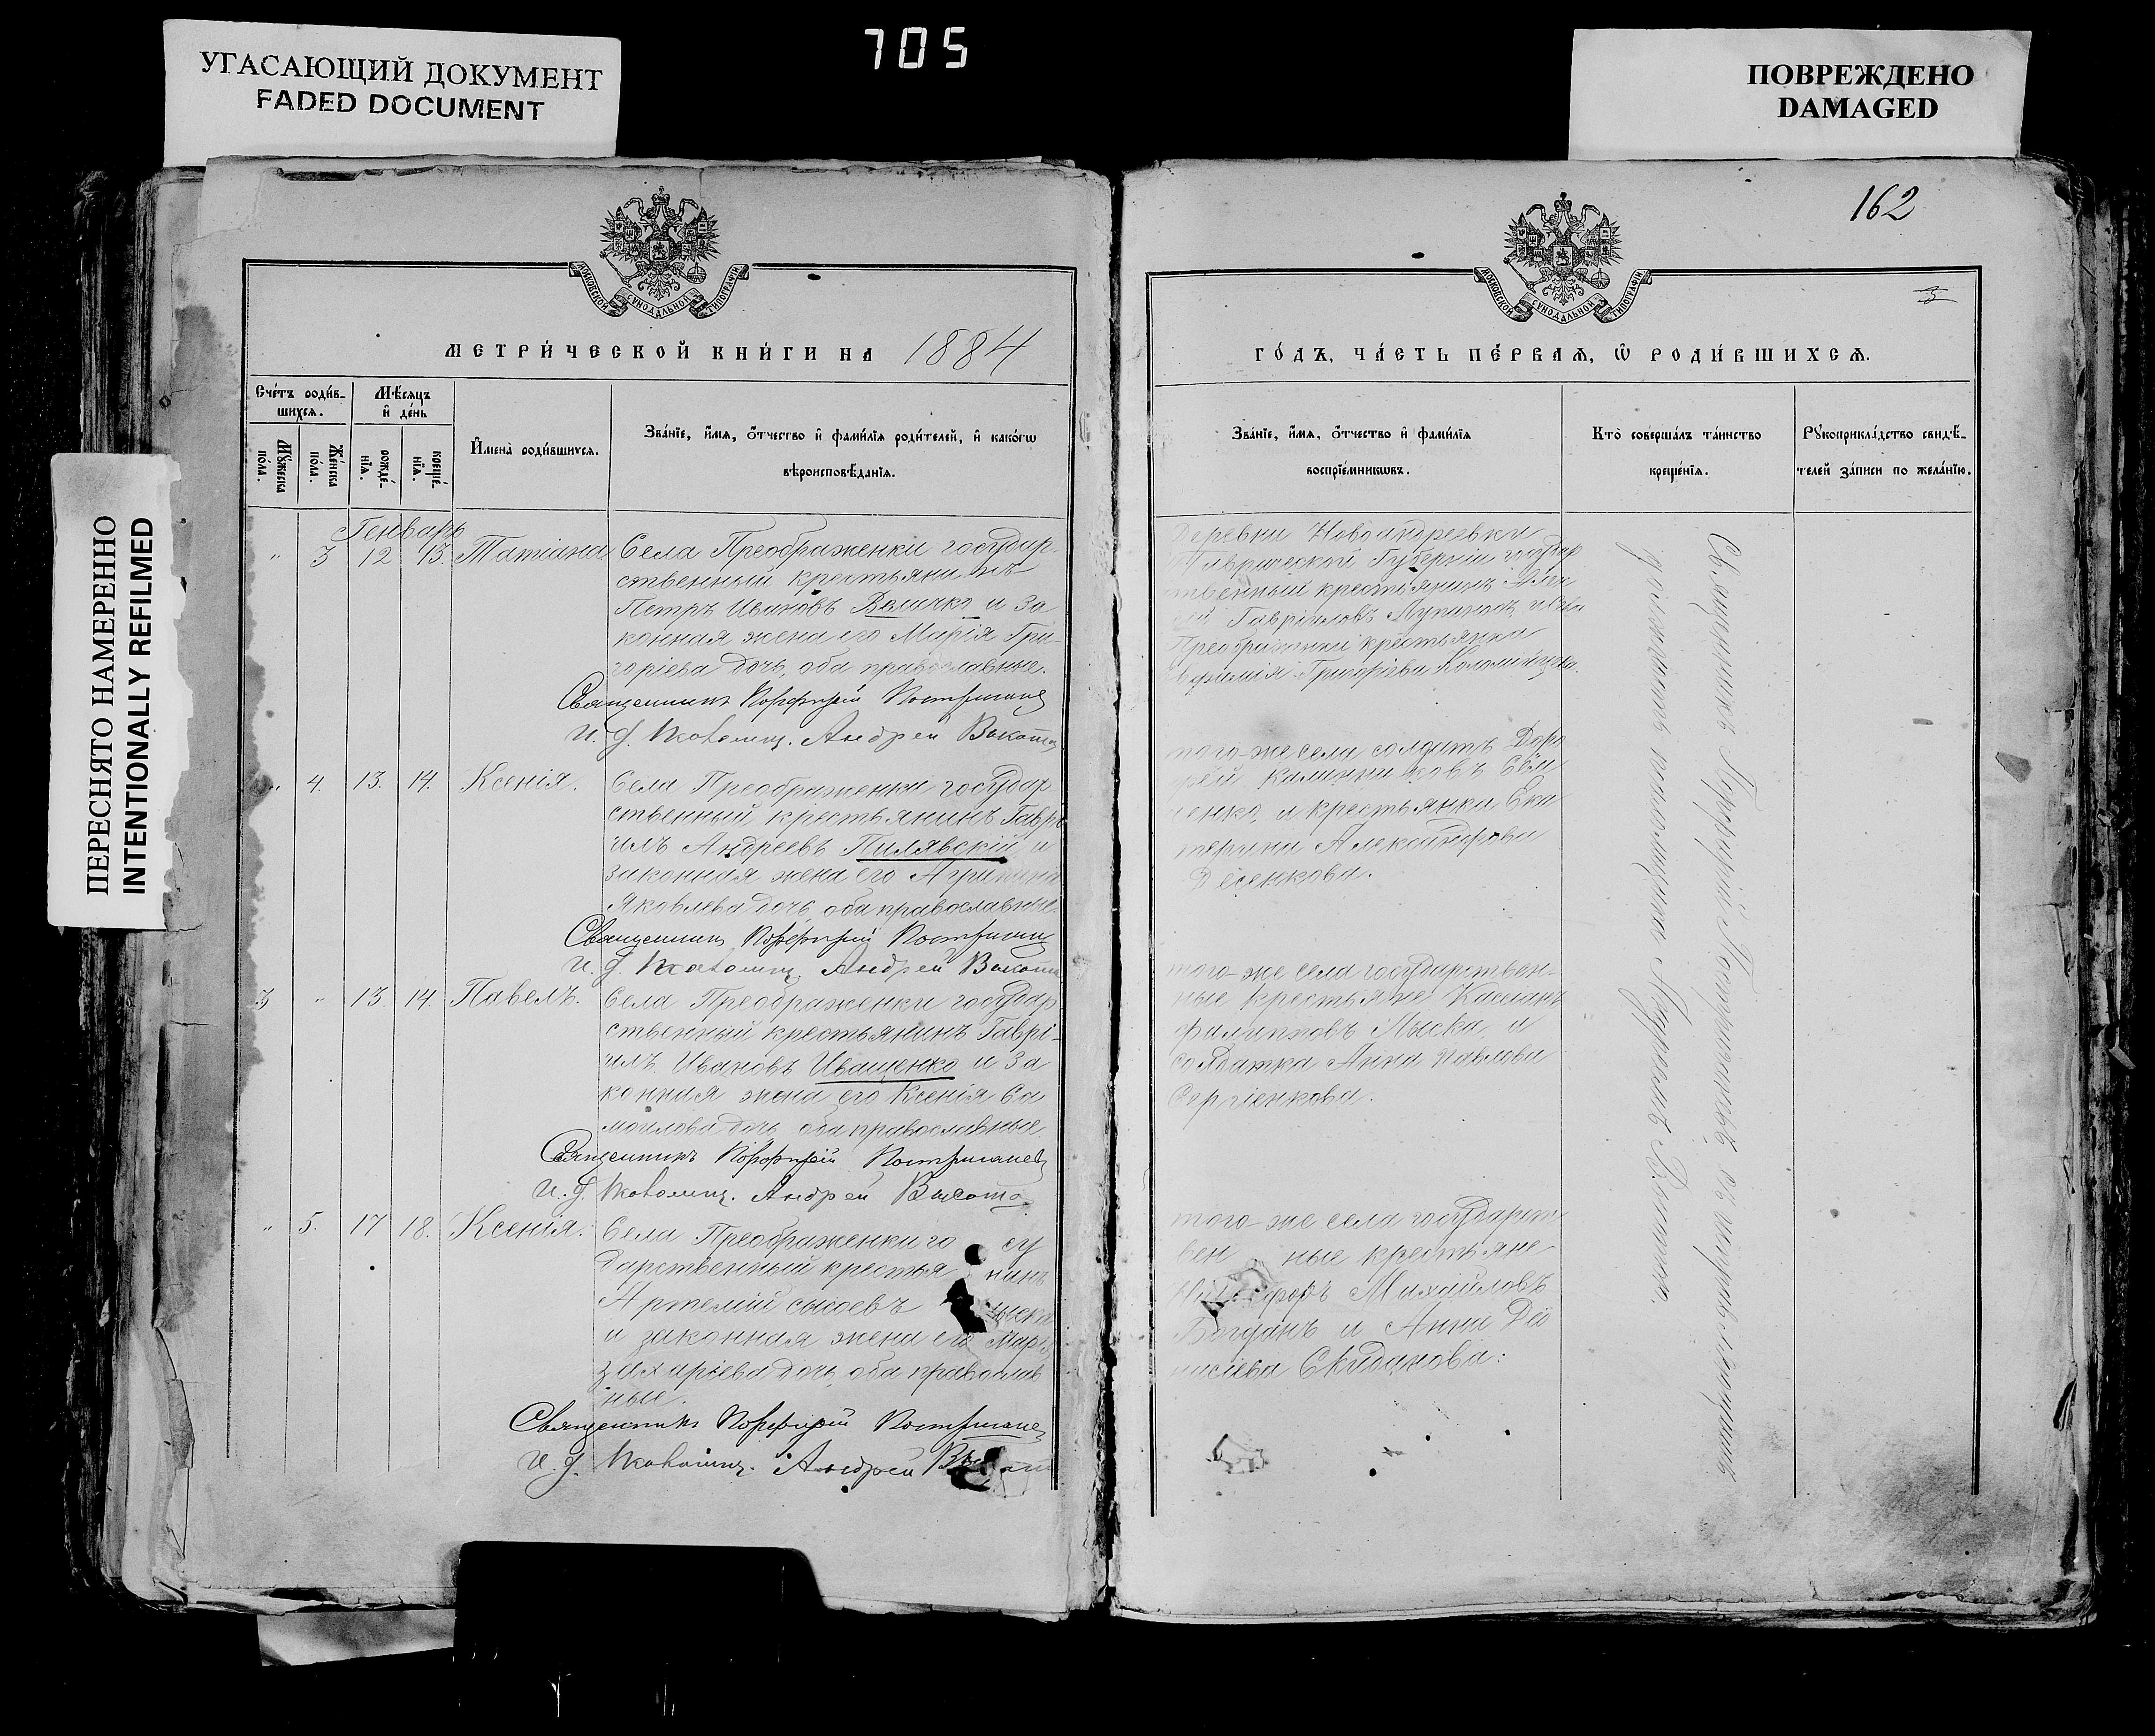 705
УГАСАЮЩИЙ ДОКУМЕНТ
FADED DOCUMENT
ПОВРЕЖДЕНО
DAMAGED
ПЕРЕСНЯТО НАМЕРЕННО
INTENTIONALLY REFILMED
МОСКОВСКОЙ СѴНОДАЛЬНОЙ ТИПОГРАФІИ
МЕТРИ́ЧЕСКОЙ КНИ́ГИ НА 1884
Сче́тъ роди́в-
шихсѧ.
Мѣ́сѧцъ
и҆ де́нь
Мꙋ́жеска
по́ла.
Же́нска
по́ла.
рожде́-
нїѧ.
креще́-
нїѧ.
И҆мена̀ роди́вшихсѧ.
Зва́нїе, и҆́мѧ, о҆́тчество и҆ фамѝлїѧ роди́телей, и҆ како́гѡ
вѣроисповѣ́данїѧ.
Генварь
" 3 12 13. Татіана Села Преображенки государ-
ственный крестьянинъ
Петръ Ивановъ Величко и за
конная жена его Марія Гри-
горіева дочь, оба православные.
Священникъ Порфирій
И. д. Псаломщ. Андрей Высота
" 4. 13. 14. Ксенія. Села Преображенки государ
ственный крестьянинъ Гаврі
илъ Андреевъ Пилявскій и
законная жена его Агрипина
Яковлева дочь, оба православные.
Священникъ Порфирій
И. д. Псаломщ. Андрей Высота
3 " 13. 14. Павелъ. Села Преображенки государ
ственный крестьянинъ Гаврі-
илъ Ивановъ Иващенко и за
конная жена его Ксенія Са
мойлова дочь, оба православные
Священникъ Порфирій
И. д. Псаломщ. Андрей Высота
" 5. 17 18. Ксенія. Села Преображенки го су
дарственный крестья нинъ
Артемій Сысоевъ
и законная жена его Марія
Захаріева дочь, оба православ
ные.
Священникъ Порфирій
И. д. Псаломщ. Андрей
162
МОСКОВСКОЙ СѴНОДАЛЬНОЙ ТИПОГРАФІИ
3
ГО́ДЪ, ЧА́СТЬ ПЕ́РВАѦ, Ѽ РОДИ́ВШИХСѦ.
Зва́нїе, и҆́мѧ, о҆́тчество и҆ фамѝлїѧ
воспрїе́мникѡвъ.
Кто̀ соверша́лъ та́инство
креще́нїѧ.
Рꙋкоприкла́дство свидѣ́-
телей за́писи по жела́нїю.
Деревни Новоандреевки
Таврической Губерніи государ
ственный крестьянинъ
Гавріиловъ и села
Преображенки крестьянка
Евфимія Григорьева
того-же села солдатъ Доро
фей Калинниковъ Сем
ченко, и крестьянка Ека
терина Александрова
Десенкова.
того-же села государствен-
ные крестьяне Кассіанъ
Филипповъ Мыска, и
солдатка Анна Павлова
Сергіенкова.
того-же села государст
вен ные крестьяне
Никифоръ Михайловъ
Богданъ и Анна Діо
нисіева Скиданова.
Священникъ Порфирій съ
псаломщика Андреемъ